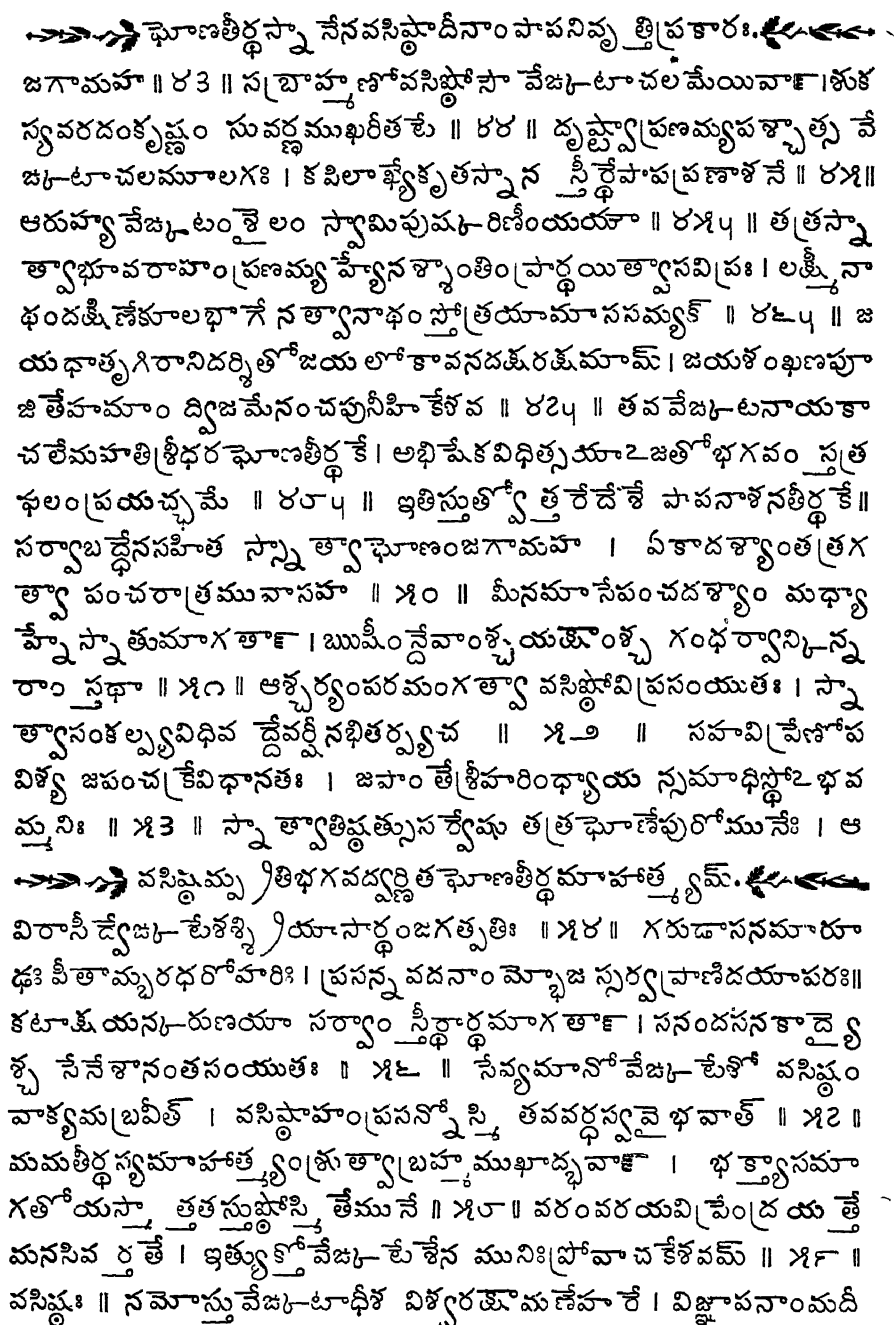 ఘోణతీర్థస్నానేనవసిష్ఠాదీనాంపాపనివృత్తిప్రకారః.
జగామహ ॥ ౪౩ ॥ సబ్రాహ్మణోవసిష్ఠోసౌ వేఙ్కటాచలమేయివాన్ ।శుక
స్యవరదంకృష్ణం సువర్ణముఖరీతటే ॥ ౪౪ ॥ దృష్ట్వాప్రణమ్యపశ్చాత్స వే
ఙ్కటాచలమూలగః । కపిలాఖ్యేకృతస్నాన స్తీర్థేపాపప్రణాశనే ॥ ౪౫॥
ఆరుహ్యవేఙ్కటంశైలం స్వామిపుష్కరిణీంయయౌ ॥ ౪౫౺ ॥ తత్రస్నా
త్వాభూవరాహంప్రణమ్య హ్యేనశ్శాంతింప్రార్థయిత్వాసవిప్రః । లక్ష్మీనా
థందక్షిణేకూలభాగే నత్వానాథంస్తోత్రయామాససమ్యక్ ॥ ౪౬౺ ॥ జ
యధాతృగిరానిదర్శితోజయ లోకావనదక్షరక్షమామ్ । జయశంఖణపూ
జితేహమాం ద్విజమేనంచపునీహికేశవ ॥ ౪౭౺ ॥ తవవేఙ్కటనాయకా
చలేమహతిశ్రీధరఘోణతీర్థకే । అభిషేకవిధిత్సయాఽజతోభగవం స్తత్ర
ఫలంప్రయచ్ఛమే ॥ ౪౮౺ ॥ ఇతిస్తుత్వోత్తరేదేశే పాపనాశనతీర్థకే॥
సర్వాబద్ధేనసహిత స్స్నాత్వాఘోణంజగామహ । ఏకాదశ్యాంతత్రగ
త్వా పంచరాత్రమువాసహ ॥ ౫౦ ॥ మీనమాసేపంచదశ్యాం మధ్యా
హ్నేస్నాతుమాగతాన్ ।ఋషీందేవాంశ్చయక్షాంశ్చ గంధర్వాన్కిన్న
రాం స్తథా ॥ ౫౧ ॥ ఆశ్చర్యంపరమంగత్వా వసిష్ఠోవిప్రసంయుతః । స్నా
త్వాసంకల్ప్యవిధివ ద్దేవర్షీనభితర్ప్యచ ॥ ౫౨ ॥ సహవిప్రేణోప
విశ్య జపంచక్రేవిధానతః । జపాంతేశ్రీహరింధ్యాయ న్సమాధిస్థోఽభవ
మ్మనిః ॥ ౫౩ ॥ స్నాత్వాతిష్ఠత్సుసర్వేషు తత్రఘోణేపురోమునేః । ఆ
వసిష్ఠమ్ప్రతిభగవద్వర్ణితఘోణతీర్థమాహాత్మ్యమ్.
విరాసీద్వేఙ్కటేశశ్శ్రియాసార్థంజగత్పతిః ॥౫౪॥ గరుడాసనమారూ
ఢః పీతామ్బరధరోహరిః । ప్రసన్నవదనాంమ్భోజ స్సర్వప్రాణిదయాపరః॥
కటాక్షయన్కరుణయా సర్వాం స్తీర్థార్థమాగతాన్ । సనందసనకాద్యై
శ్చ సేనేశానంతసంయుతః ॥ ౫౬ ॥ సేవ్యమానోవేఙ్కటేశో వసిష్ఠం
వాక్యమబ్రవీత్ । వసిష్ఠాహంప్రసన్నోస్మి తవవర్ధస్వవైభవాత్ ॥ ౫౭॥
మమతీర్థస్యమాహాత్మ్యంశ్రుత్వాబ్రహ్మముఖాద్భవాన్ । భక్త్యాసమా
గతోయస్మా త్తతస్తుష్టోస్మితేమునే ॥ ౫౮॥ వరంవరయవిప్రేంద్ర యత్తే
మనసివర్తతే । ఇత్యుక్తోవేఙ్కటేశేన మునిఃప్రోవాచకేశవమ్ ॥ ౫౯ ॥
వసిష్ఠః ॥ నమోస్తువేఙ్కటాధీశ విశ్వరక్షామణేహరే । విజ్ఞాపనాంమదీ